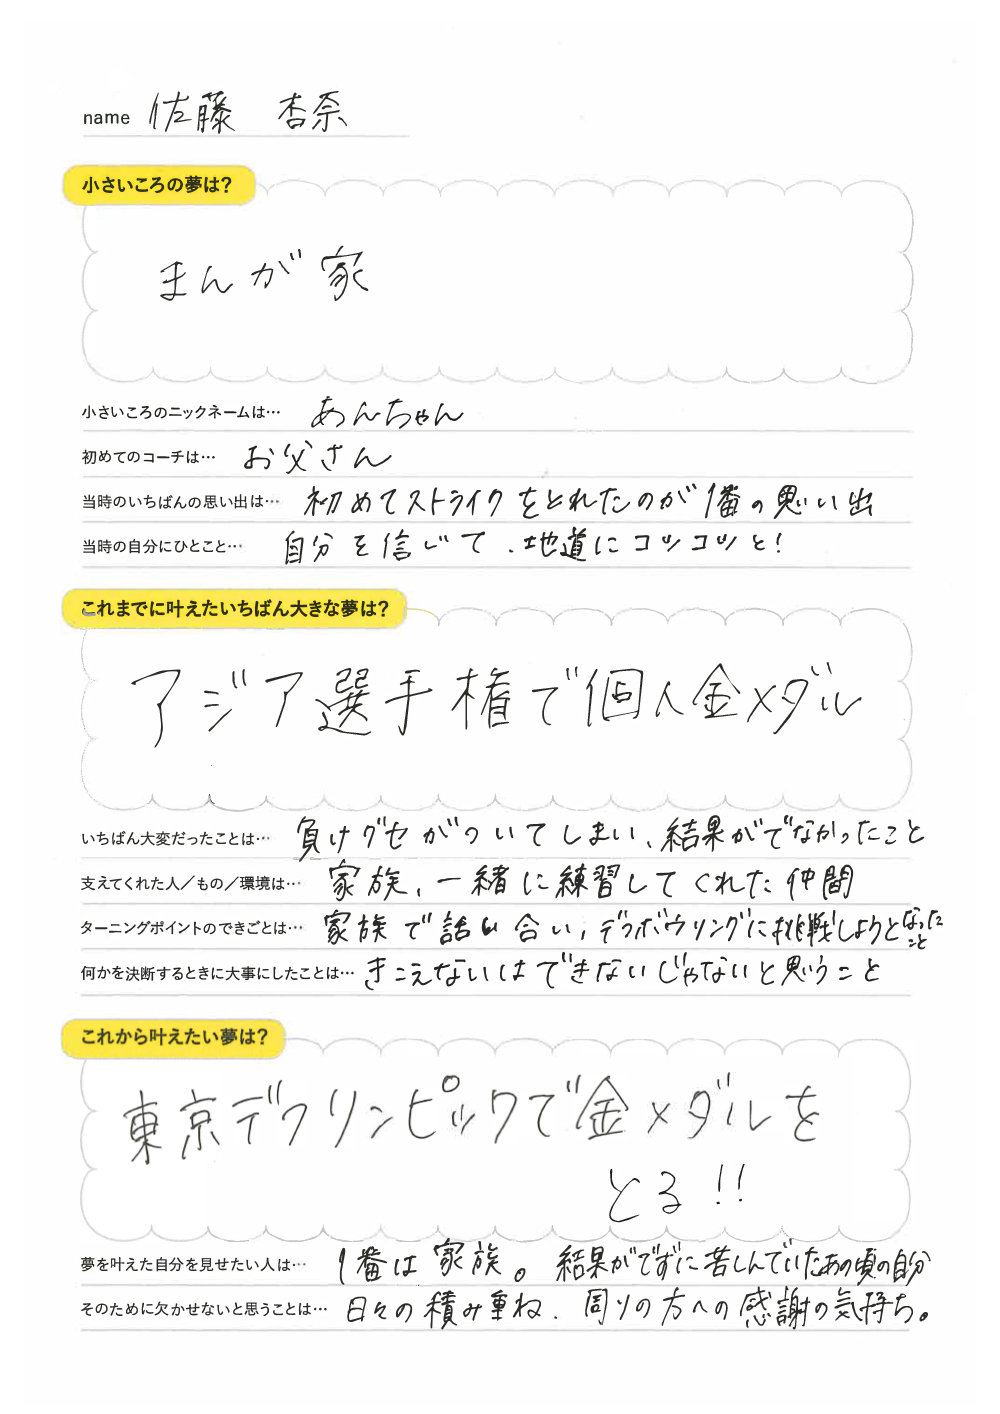 name 佐藤 杏奈
小さいころの夢は？
まんが家
小さいころのニックネームは… あんちゃん
初めてのコーチは… お父さん
当時のいちばんの思い出は… 初めてストライクをとれたのが1番の思い出
当時の自分にひとこと… 自分を信じて、地道にコツコツと！
これまでに叶えたいちばん大きな夢は？
アジア選手権で個人金メダル
いちばん大変だったことは… 負けグセがついてしまい、結果がでなかったこと
支えてくれた人／もの／環境は… 家族、一緒に練習してくれた仲間
ターニングポイントのできごとは… 家族で話し合い、デフボウリングに挑戦しようとなったこと
何かを決断するときに大事にしたことは… きこえないはできないじゃないと思うこと
これから叶えたい夢は？
東京デフリンピックで金メダルを
とる！！
夢を叶えた自分を見せたい人は… 1番は家族。結果がでずに苦しんでいたあの頃の自分
そのために欠かせないと思うことは… 日々の積み重ね、周りの方への感謝の気持ち。